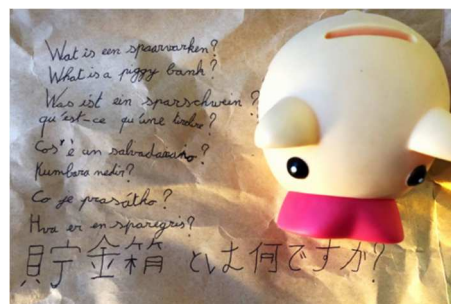 Wat is een spaarvarken?
What is a piggy bank?
Was ist ein sparschwein ?
qu'est-ce qu'une ?
Cos'è un salvadanaio ?
Kumbara nedir?
Co je prasátko ?
Hva er en sparegris?
貯金箱 とは何ですか?